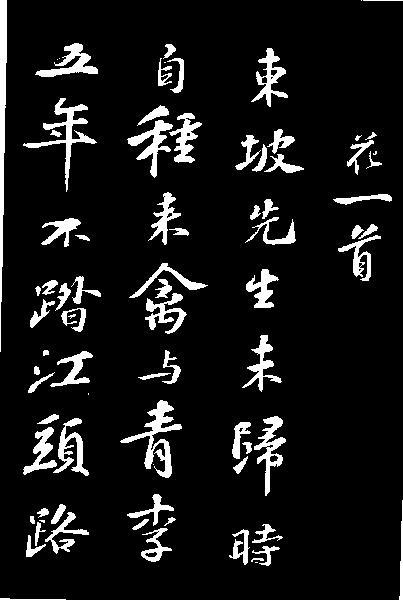 花一首
東坡先生未歸時
自種来禽与青李
五年不踏江頭路